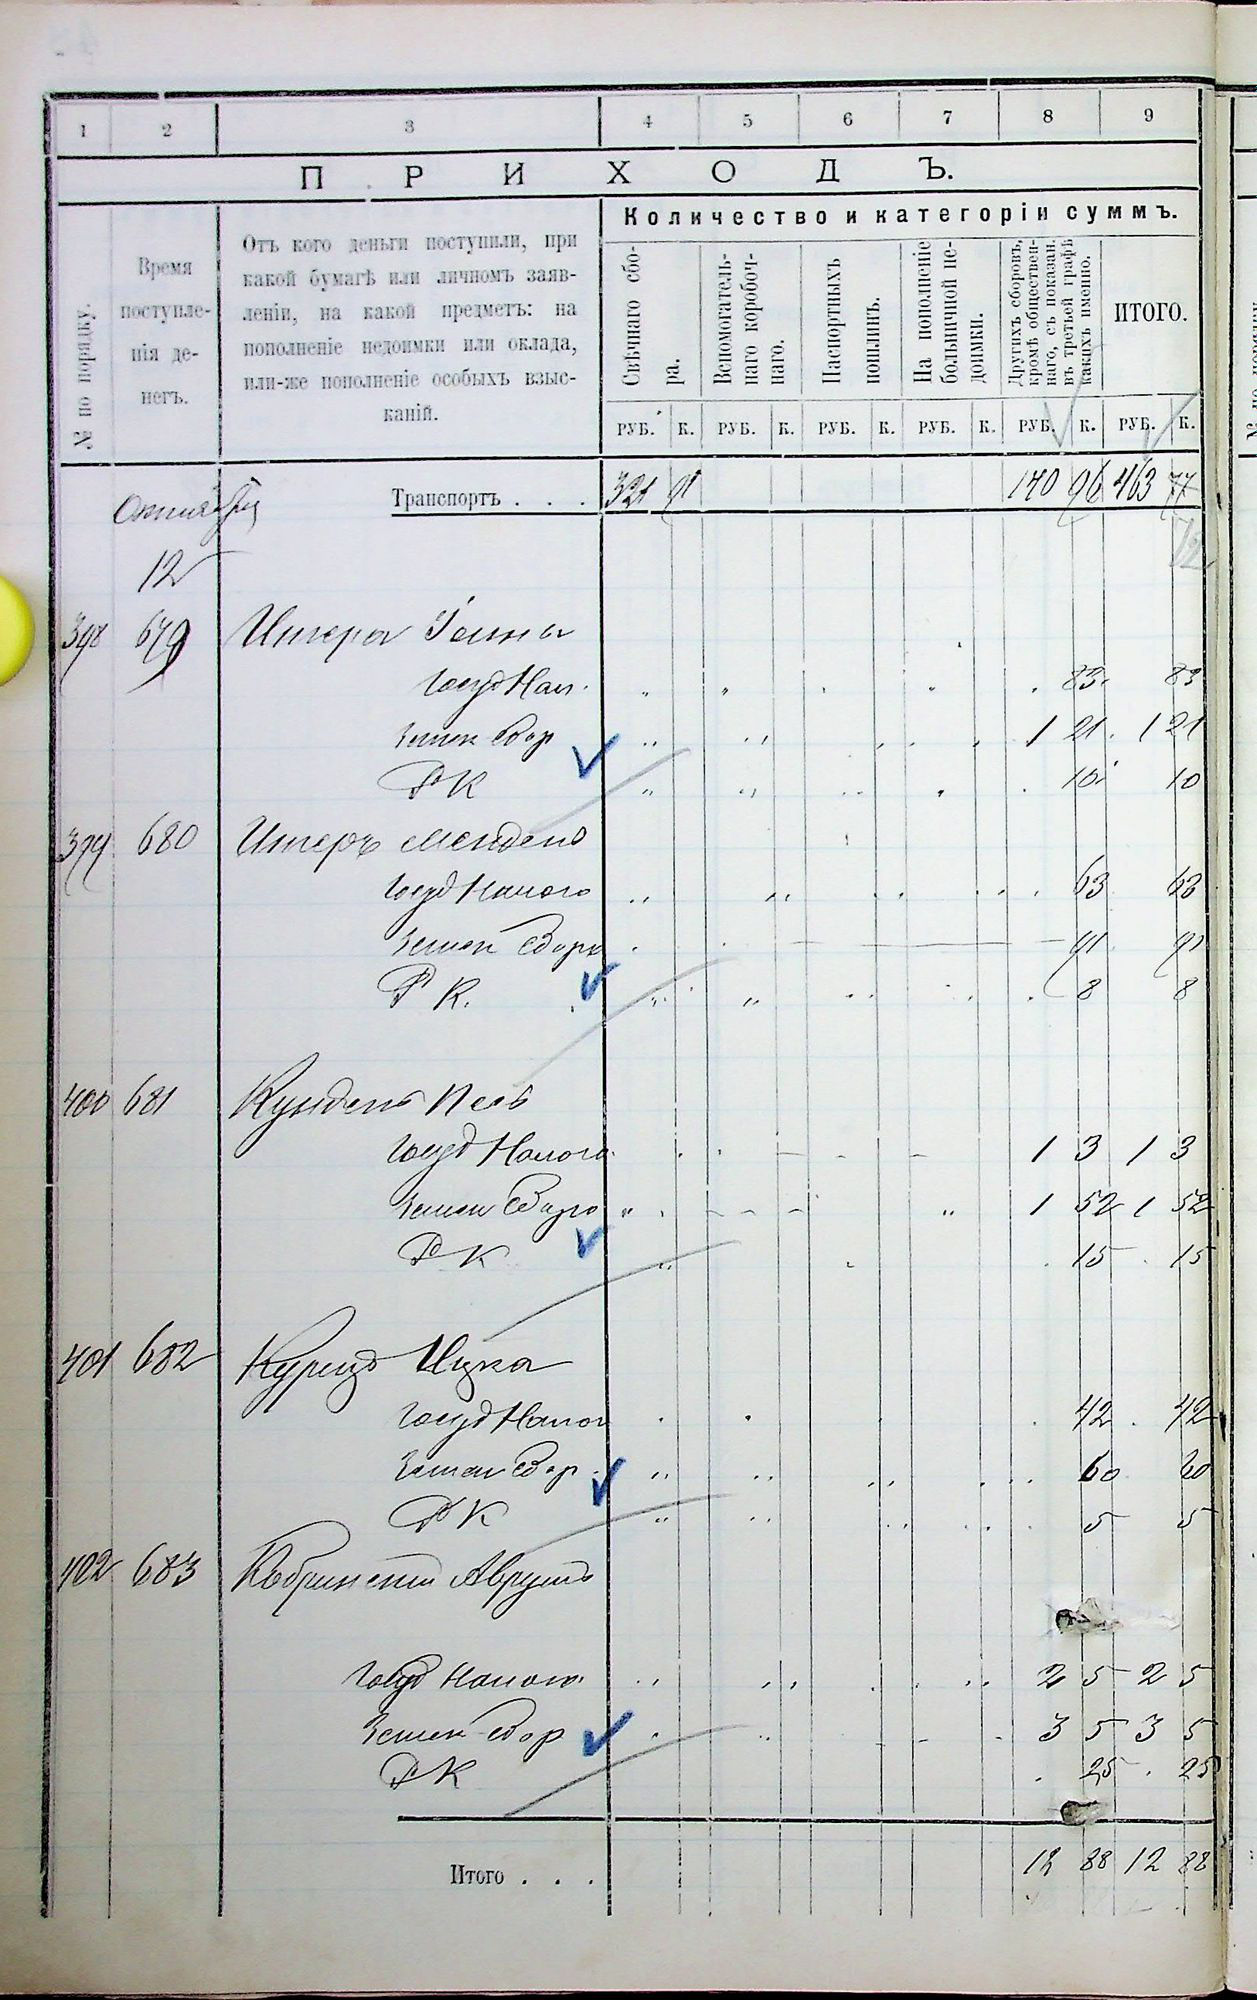 1 2 3 4 5 6 7 8 9
ПРИХОДЪ.
№ по порядку.
Время
поступле-
нія де-
негъ.
Отъ кого деньги поступили, при
какой бумагѣ или личномъ заяв-
леніи, на какой предметъ: на
пополненіе недоимки или оклада,
или-же пополненіе особыхъ взыс-
каній.
Количество и категоріи суммъ.
Свѣчнаго сбо-
ра.
Вспомогатель-
наго коробоч-
наго.
Паспортныхъ
пошлинъ.
На пополненіе
больничной не-
доимки.
Другихъ сборовъ,
кромѣ обществен-
наго, съ показан.
въ третьей графѣ
какихъ именно.
ИТОГО.
РУБ. К. РУБ. К. РУБ. К. РУБ. К. РУБ. К. РУБ. К.
Октября Транспортъ . . . 321 91 140 96 463 77
12
398 679
Госуд Нал. 83 83
Земск Сбор 1 21 1 21
Р К 10 10
399 680 Мендель
Госуд Налога 63 63
Земск Сбора 91 91
Р К. 8 8
400 681
Госуд Налога 1 3 1 3
Земск Сбора 1 52 1 52
Р К 15 15
401 682 Курицъ Ицка
Госуд Налог 42 42
Земск Сбор. 60 60
Р К 5 5
402 683 Кобринскій Аврумъ
Госуд Налога 2 5 2 5
Земск Сбор 3 5 3 5
Р К 25 25
Итого . . . 12 88 12 88